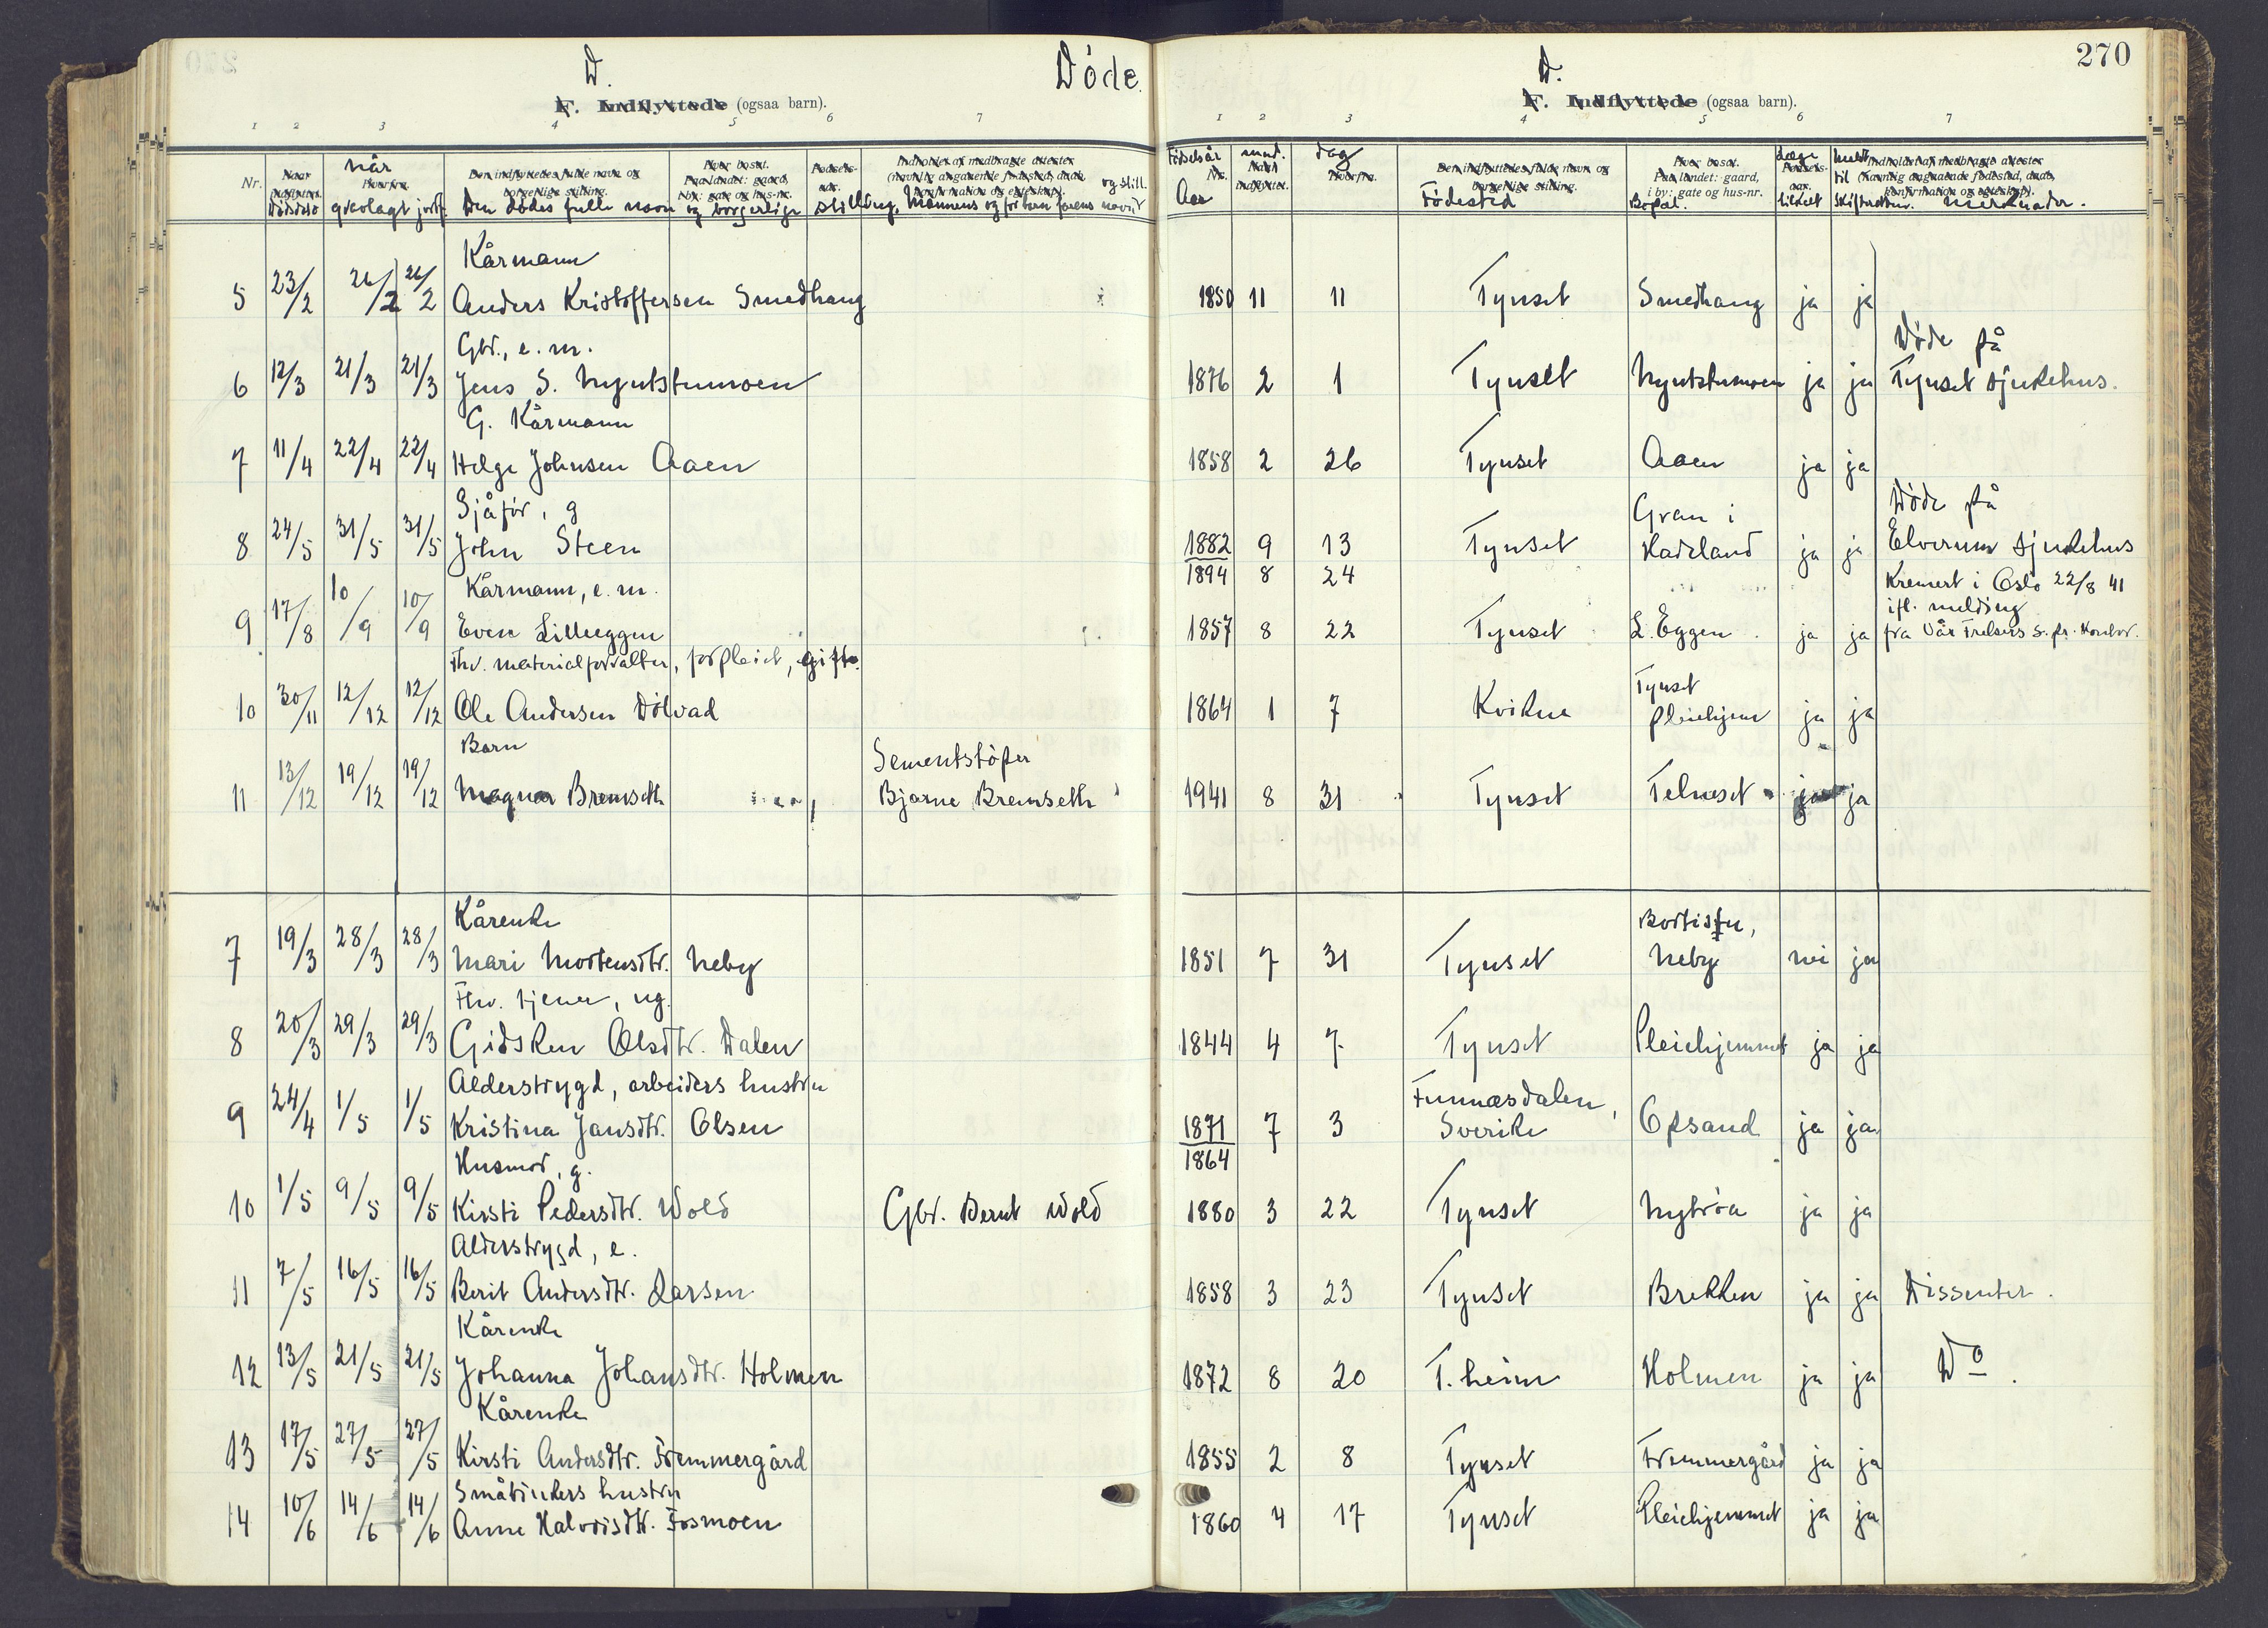 270
D. Døde.
F. Indflyttede (ogsaa barn).
1 2 3 4 5 6 7
D.
F. Indflyttede (ogsaa barn).
1 2 3 4 5 6 7
Nr. Dødsdato når gravlagt jordf. Den dødes fulle navn og borgerlige stilling. Mannens og for barn farens navn og still.
Fødselsår Aar mnd. dag Fødested Bopæl. Læge tilkalt meldt til skifteretten. merknader.
Kårmann
5 23/2 26/2 26/2 Anders Kristoffersen Smedhaug 1850 11 11 Tynset Smedhaug ja ja
Gbr., e.m. Døde på
6 12/3 21/3 21/3 Jens S. Nyutstumoen 1876 2 1 Tynset Nyutstumoen ja ja Tynset sjukehus.
G. Kårmann
7 11/4 22/4 22/4 Helge Johnsen Aaen 1858 2 26 Tynset Aaen ja ja
Sjåfør, g Gran i Døde på
8 24/5 31/5 31/5 John Steen 1882 9 13 Tynset Hadeland ja ja Elverum sjukehus
1894 8 24
Kårmann, e.m. Kremert i Oslo 22/8 41
ifl. melding
9 17/8 10/9 10/9 Even Lilleeggen 1857 8 22 Tynset L. Eggen ja ja fra Vår Frelsers s.pr. kontor.
Fhv. materialforvalter, forpleiet, gift.
Tynset
10 30/11 12/12 12/12 Ole Andersen Dølvad 1864 1 7 Kvikne pleiehjem ja ja
Barn Sementstøper
11 13/12 19/12 19/12 Magnar Bremseth Bjarne Bremseth 1941 8 31 Tynset Telneset ja ja
Kårenke Bortistu,
7 19/3 28/3 28/3 Mari Mortensdtr. Neby 1851 7 31 Tynset Neby nei ja
Fhv. tjener, ug.
8 20/3 29/3 29/3 Gidsken Olsdtr. Dalen 1844 4 7 Tynset Pleiehjemmet ja ja
Alderstrygd, arbeiders hustru Funnæsdalen,
9 24/4 1/5 1/5 Kristina Jansdtr. Olsen 1871 7 3 Sverike Opsand ja ja
1864
Husmor, g.
10 1/5 9/5 9/5 Kirsti Pedersdtr. Wold Gbr. Bernt Wold 1880 3 22 Tynset Nytrøa ja ja
Alderstrygd, e.
11 7/5 16/5 16/5 Berit Andersdtr. Larsen 1858 3 23 Tynset Brekken ja ja Dissenter.
Kårenke
12 13/5 21/5 21/5 Johanna Johansdtr. Holmen 1872 8 20 T.heim Holmen ja ja Do.
Kårenke
13 17/5 27/5 27/5 Kirsti Andersdtr. Fremmergård 1855 2 8 Tynset Fremmergård ja ja
Småbrukers hustru
14 10/6 14/6 14/6 Anne Halvorsdtr. Fosmoen 1860 4 17 Tynset Pleiehjemmet ja ja